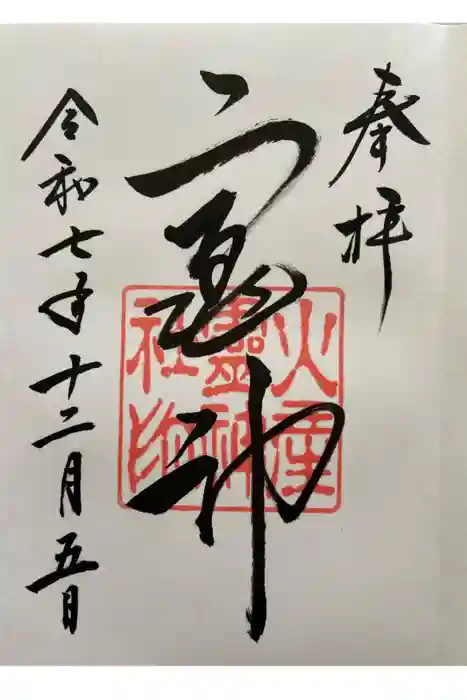 奉拝
神
火産
靈神
社印
令和七年十二月五日